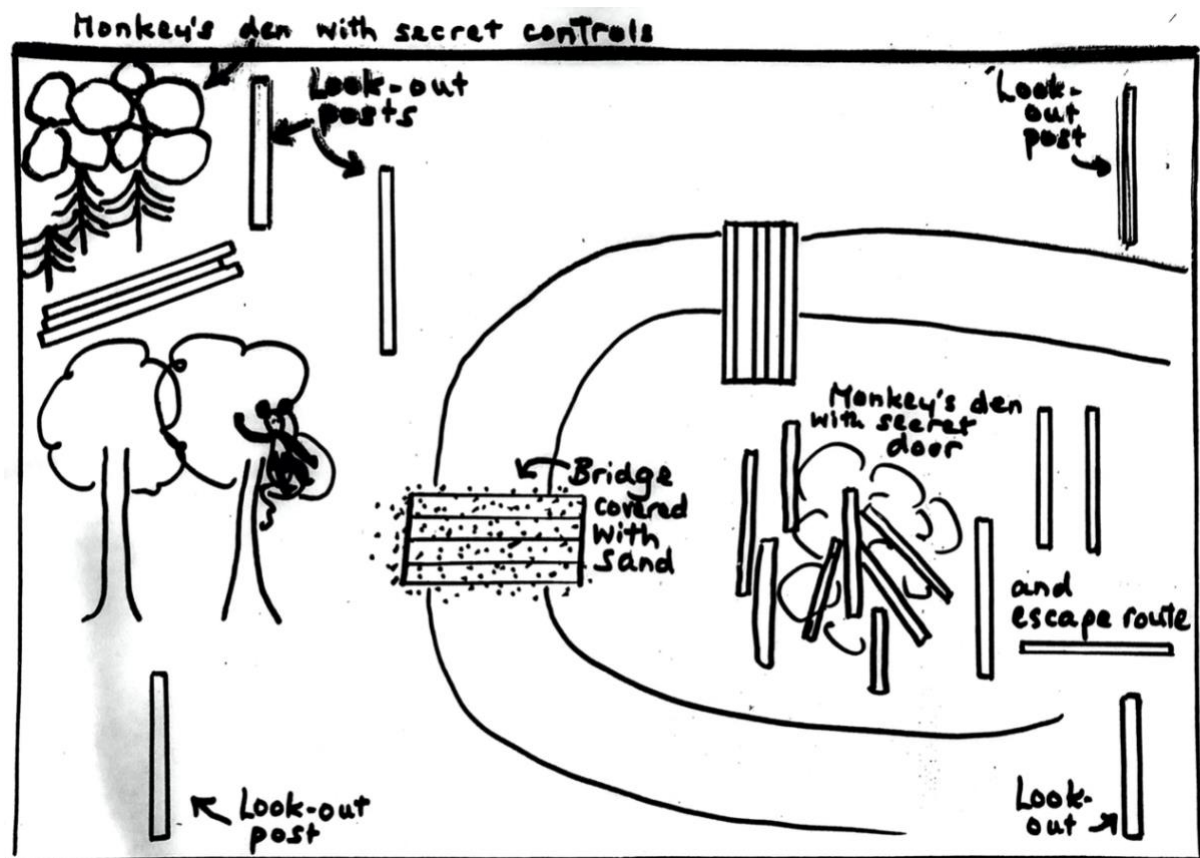 Monkey's den with secret controls
Look-out
posts
Look-
out
post
Monkey's den
with secret
door
Bridge
covered
with
sand
and
escape route
Look-out
post
Look-
out